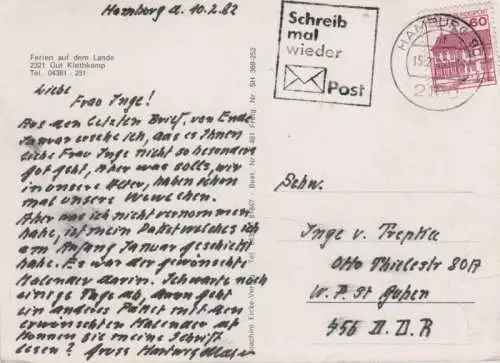 Hamburg d. 10.2.82
Ferien auf dem Lande
2321 Gut Kletkamp
Tel. 04381 - 251
Liebe
Frau Inge!
Aus den letzten Brief, von Ende
Januar ersehe ich, das es Ihnen
liebe Frau Inge nicht so besonders
got geht, Aber was solls, wir
in unsere Alter, haben schon
mal unsere Wewechen.
Aber was ich nicht vernommen
habe, ist mein Paket welches ich
am Anfang Januar geschickt
habe. Es war der gewünschte
Kalender darin. Ich warte noch
einige Tage ab, dann geht
ein anderes Paket mit dem
erwünschten Kalender ab
können Sie meine Schrift
lesen? Gruss Hartwig
Schreib
mal
wieder
Post
HAMBURG
60
Schw.
Inge v.
Otto Thielestr 80A
W. P. St Guben
756 D. D. R